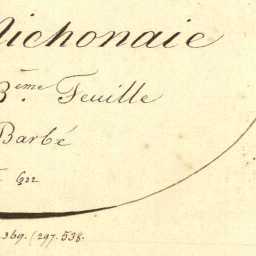 Nichonaie
3.ème Feuille
Barbé
622
369. (297. 538.